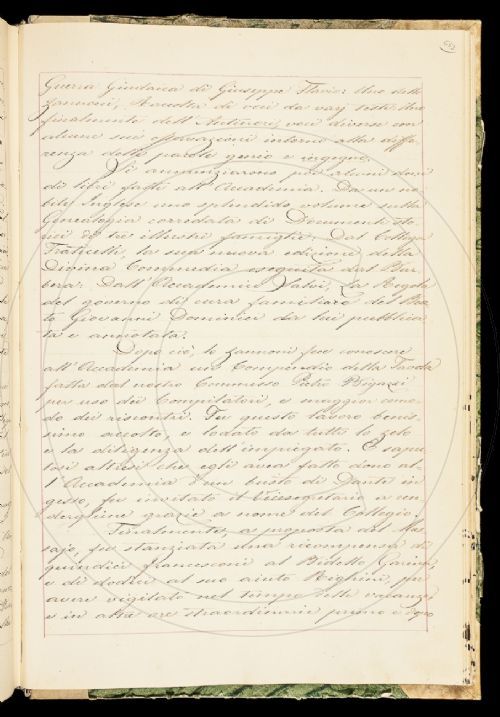 Guerra Giudaica di Giuseppe Flavio: Uno dello
Zannoni, Raccolta di voci da varj testi: Uno
finalmente dell'Antinori, voci diverse con
alcune sue osservazioni intorno alla diffe-
renza delle parole genio e ingegno.
Si annunziarono poi alcuni doni
di libri fatti all'Accademia. Da un no-
bile Inglese uno splendido volume sulla
Genealogia corredata di Documenti sto-
rici di tre illustri famiglie. Dal Collega
Fraticelli, la sua nuova edizione della
Divina Commedia eseguita dal Bar-
bera: Dall'Accademico Salvi, La Regola
del governo di cura familiare del Bea-
to Giovanni Dominici da lui pubblica-
ta e annotata.
Dopo ciò, lo Zannoni fece conoscere
all'Accademia un Compendio della Tavola
fatta dal nostro Commesso Pietro Bigazzi
per uso dei Compilatori, e maggior como-
do dei riscontri. Fu questo lavoro benis-
simo accolto, e lodato da tutti lo zelo
e la diligenza dell'impiegato. E sapu-
tosi altresì che egli avea fatto dono al-
l'Accademia d'un busto di Dante in
gesso, fu invitato il Vicesegretario a ren-
dergliene grazie a nome del Collegio.
Finalmente, a proposta del Mas-
sajo, fu stanziata una ricompensa di
quindici francesconi al Bidello Garinei
e di dodici al suo aiuto Righini, per
avere vigilato nel tempo delle vacanze
e in altre ore straordinarie primo e dopo